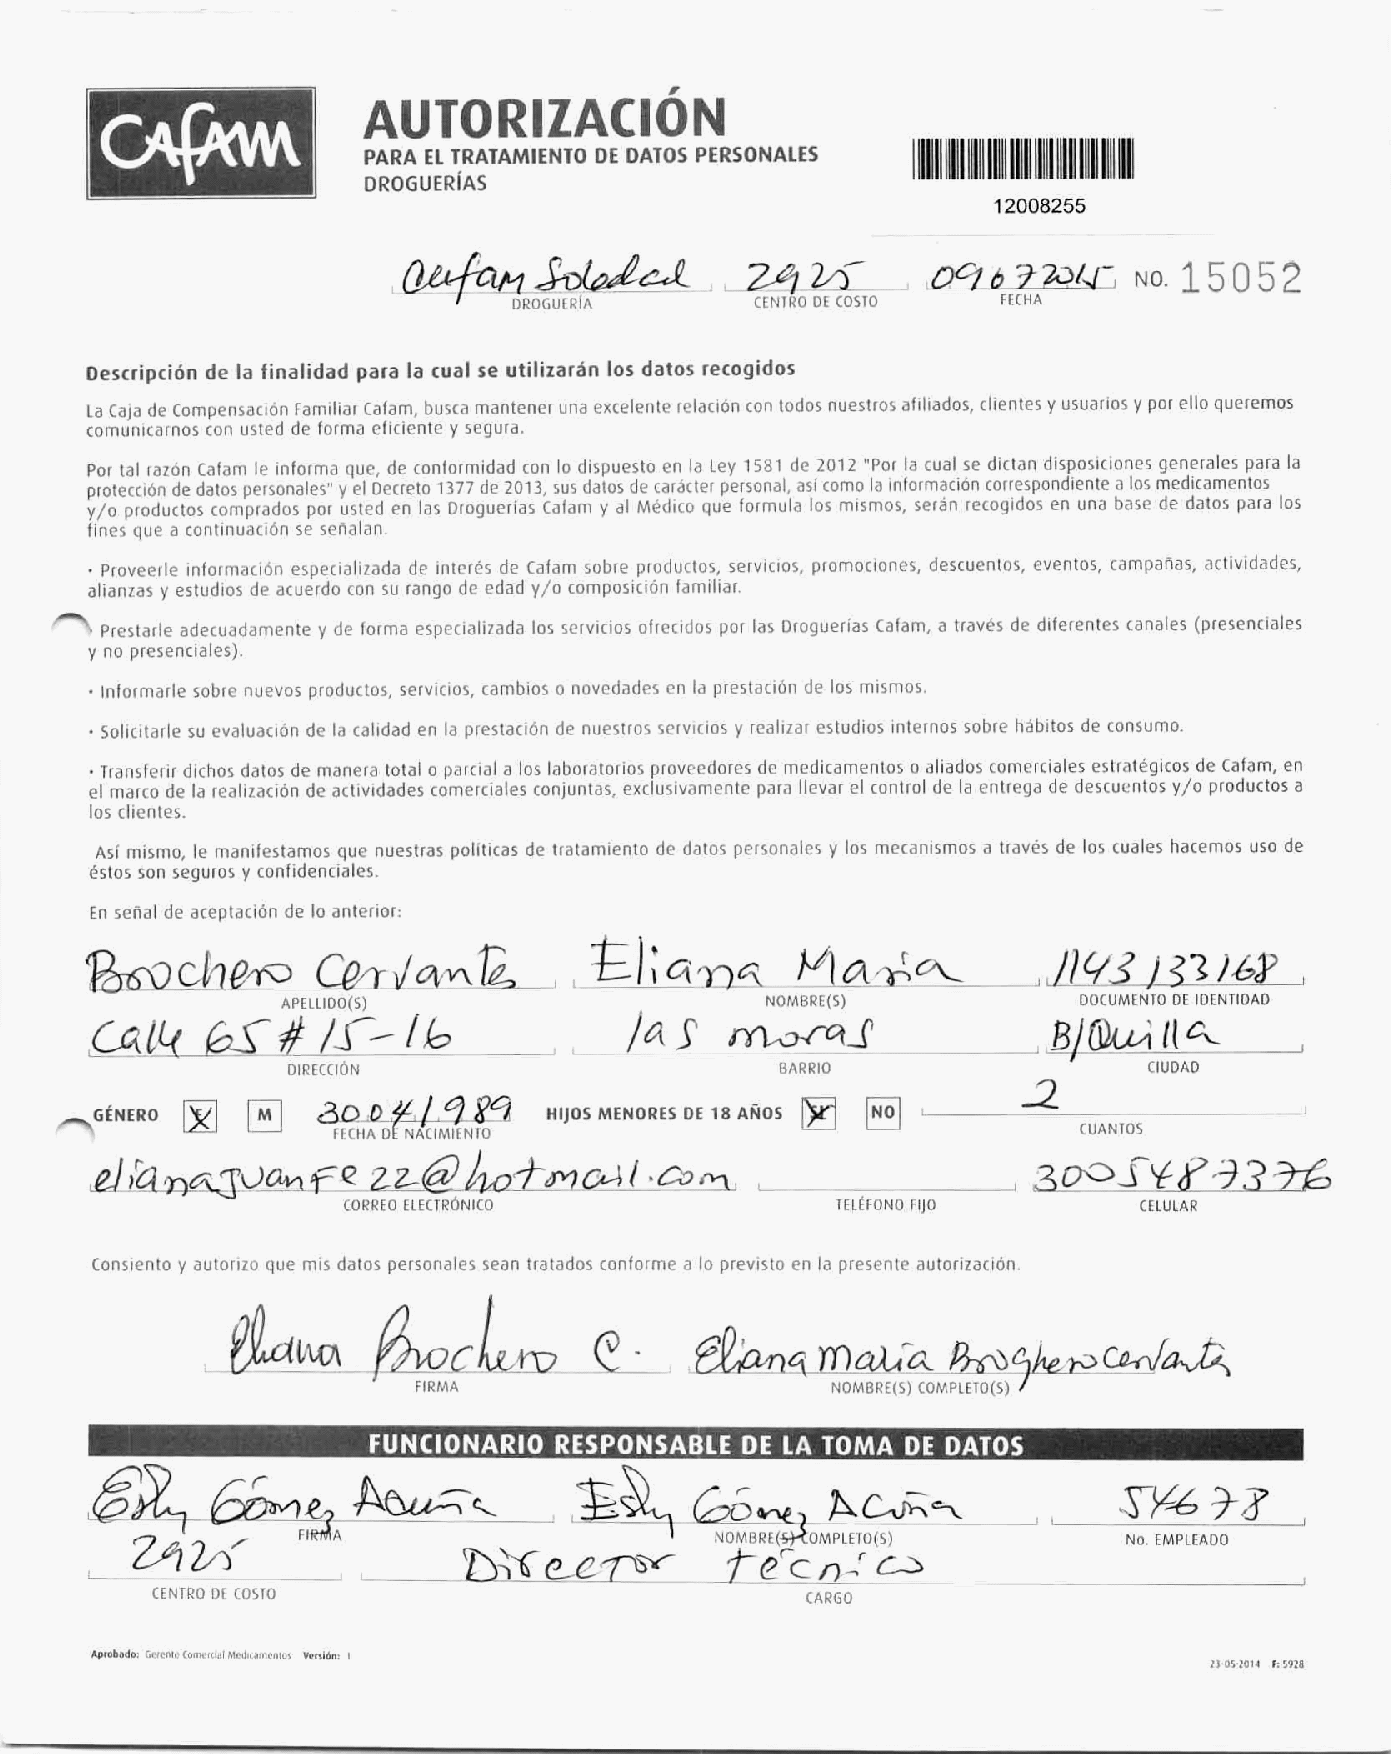 CAFAM
AUTORIZACIÓN
PARA EL TRATAMIENTO DE DATOS PERSONALES
DROGUERÍAS
12008255
Cafam Soledad 2925 09072015 NO. 15052
DROGUERÍA CENTRO DE COSTO FECHA
Descripción de la finalidad para la cual se utilizarán los datos recogidos
La Caja de Compensación Familiar Cafam, busca mantener una excelente relación con todos nuestros afiliados, clientes y usuarios y por ello queremos
comunicarnos con usted de forma eficiente y segura.
Por tal razón Cafam le informa que, de conformidad con lo dispuesto en la Ley 1581 de 2012 "Por la cual se dictan disposiciones generales para la
protección de datos personales" y el Decreto 1377 de 2013, sus datos de carácter personal, así como la información correspondiente a los medicamentos
y/o productos comprados por usted en las Droguerías Cafam y al Médico que formula los mismos, serán recogidos en una base de datos para los
fines que a continuación se señalan.
· Proveerle información especializada de interés de Cafam sobre productos, servicios, promociones, descuentos, eventos, campañas, actividades,
alianzas y estudios de acuerdo con su rango de edad y/o composición familiar.
Prestarle adecuadamente y de forma especializada los servicios ofrecidos por las Droguerías Cafam, a través de diferentes canales (presenciales
y no presenciales).
· Informarle sobre nuevos productos, servicios, cambios o novedades en la prestación de los mismos.
· Solicitarle su evaluación de la calidad en la prestación de nuestros servicios y realizar estudios internos sobre hábitos de consumo.
· Transferir dichos datos de manera total o parcial a los laboratorios proveedores de medicamentos o aliados comerciales estratégicos de Cafam, en
el marco de la realización de actividades comerciales conjuntas, exclusivamente para llevar el control de la entrega de descuentos y/o productos a
los clientes.
Así mismo, le manifestamos que nuestras políticas de tratamiento de datos personales y los mecanismos a través de los cuales hacemos uso de
éstos son seguros y confidenciales.
En señal de aceptación de lo anterior:
Brochero Cervantes Eliana Maria 1143133168
APELLIDO(S) NOMBRE(S) DOCUMENTO DE IDENTIDAD
Calle 65 # 15-16 las moras B/Quilla
DIRECCIÓN BARRIO CIUDAD
GÉNERO X M 30041989 HIJOS MENORES DE 18 AÑOS X NO 2
FECHA DE NACIMIENTO CUANTOS
elianaJuanFe22@hotmail.com 3005487376
CORREO ELECTRÓNICO TELÉFONO FIJO CELULAR
Consiento y autorizo que mis datos personales sean tratados conforme a lo previsto en la presente autorización.
Eliana Brochero C. Eliana Maria Broghero Cervantes
FIRMA NOMBRE(S) COMPLETO(S)
FUNCIONARIO RESPONSABLE DE LA TOMA DE DATOS
Esly Gómez Acuña Esly Gómez Acuña 54678
FIRMA NOMBRE(S) COMPLETO(S) No. EMPLEADO
2925 Director técnico
CENTRO DE COSTO CARGO
Aprobado: Gerente Comercial Medicamentos Versión: 1
23-05-2014 F: 5928